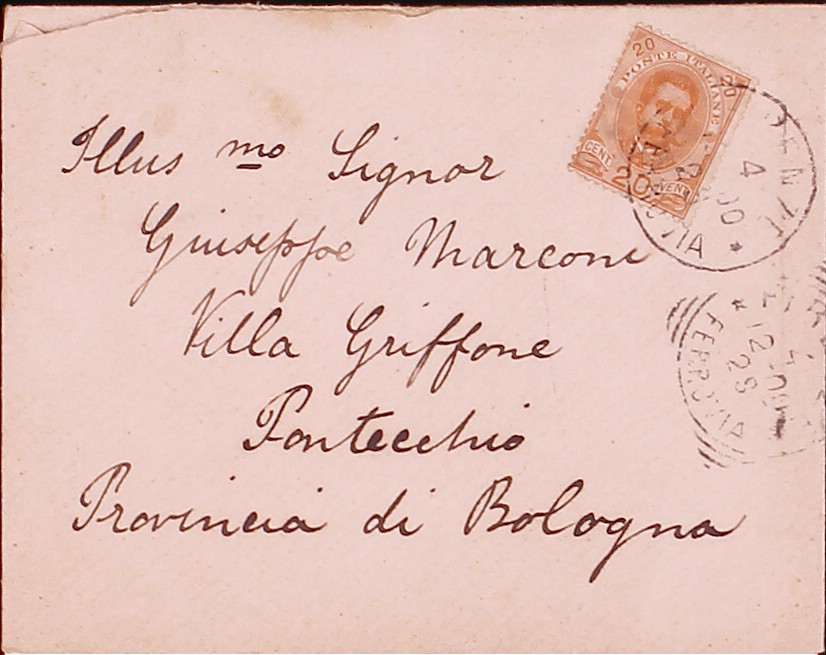 Illus mo Signor
Giuseppe Marconi
Villa Griffone
Pontecchio
Provincia di Bologna
20 POSTE ITALIANE 20
CENT. 20 VENTI
4
FERROVIA
12